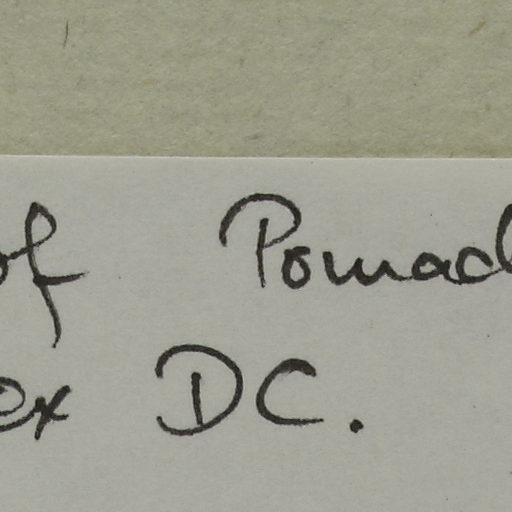 of Pomad
ex DC.